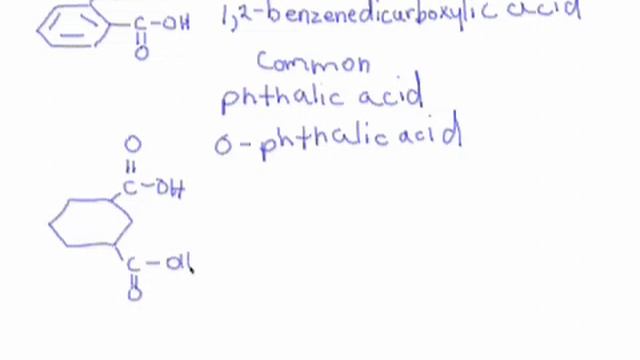 C-OH 1,2-benzenedicarboxylic acid
O
Common
phthalic acid
o-phthalic acid
O
C-OH
C-OH
O